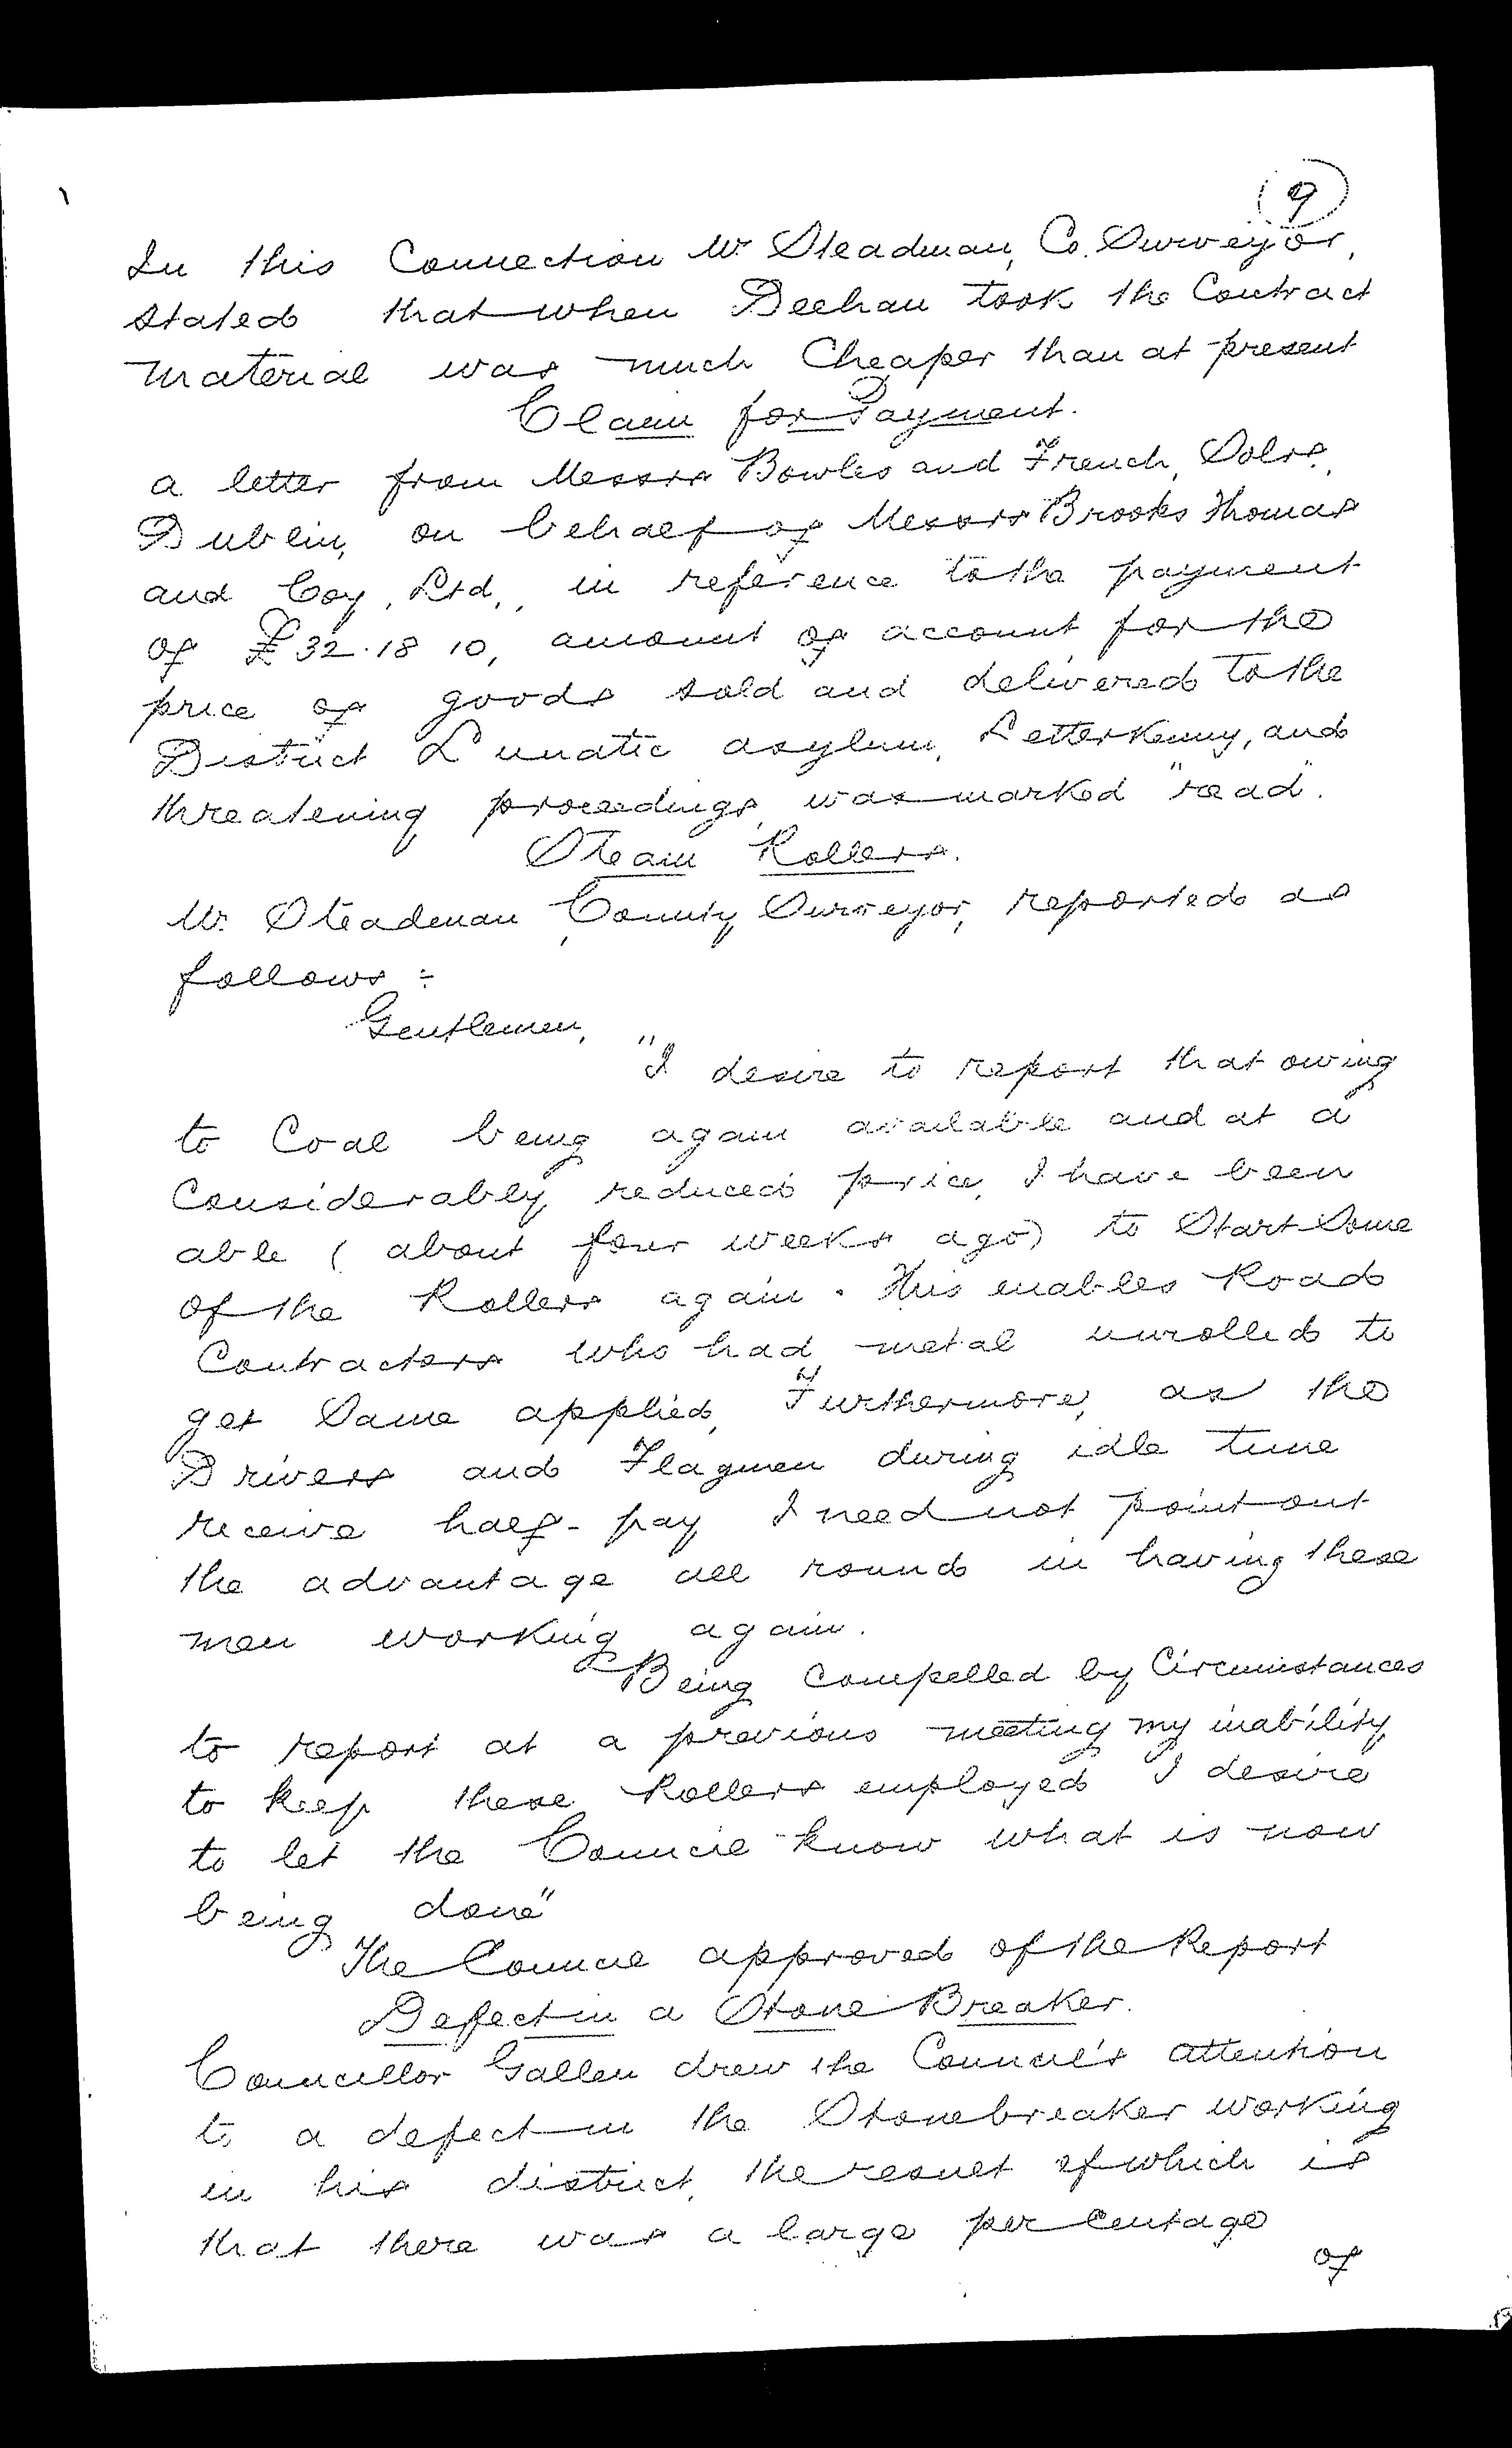 9
In this Connection Mr Steadman, Co. Surveyor,
stated that when Deehan took the Contract
material was much Cheaper than at present
Claim for Payment.
a letter from Messrs Bowles and French, Solrs,
Dublin, on behalf of Messrs Brooks Thomas
and Coy, Ltd., in reference to the payment
of £32.18 10, amount of account for the
price of goods sold and delivered to the
District Lunatic asylum, Letterkenny, and
threatening proceedings, was marked "read".
Steam Rollers.
Mr. Steadman, County Surveyor, reported as
follows :-
Gentlemen,
"I desire to report that owing
to Coal being again available and at a
Considerably reduced price, I have been
able (about four weeks ago) to Start Some
of the Rollers again. This enables Road
Contractors who had metal unrolled to
get Same applied, Furthermore, as the
Drivers and Flagmen during idle time
receive half-pay I need not point out
the advantage all round in having these
men working again.
Being Compelled by Circumstances
to report at a previous meeting my inability
to keep these Rollers employed I desire
to let the Council know what is now
being done"
The Council approved of the Report
Defect in a Stone Breaker.
Councillor Gallen drew the Council's attention
to a defect in the Stonebreaker working
in his district, the result of which is
that there was a large per Centage
of